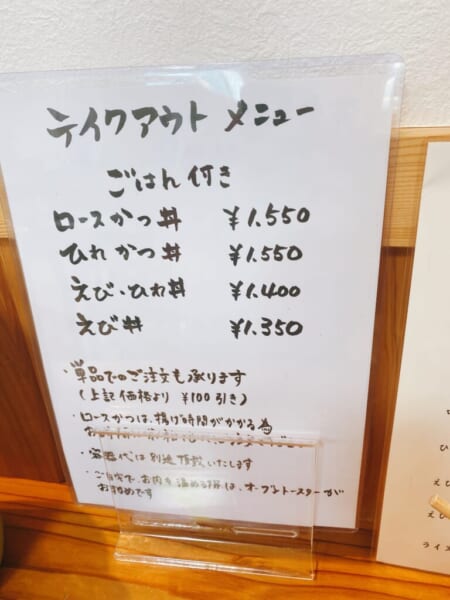 テイクアウト メニュー
ごはん付き
ロースかつ丼 ¥1,550
ひれかつ丼 ¥1,550
えび・ひれ丼 ¥1,400
えび丼 ¥1,350
・単品でのご注文も承ります
(上記価格より ¥100引き)
・ロースかつは、揚げ時間がかかる為
代は別途頂戴いたします
・ご自宅で、お肉を温める際は、オーブントースターが
おすすめです
ひ
えび
えび
ライス